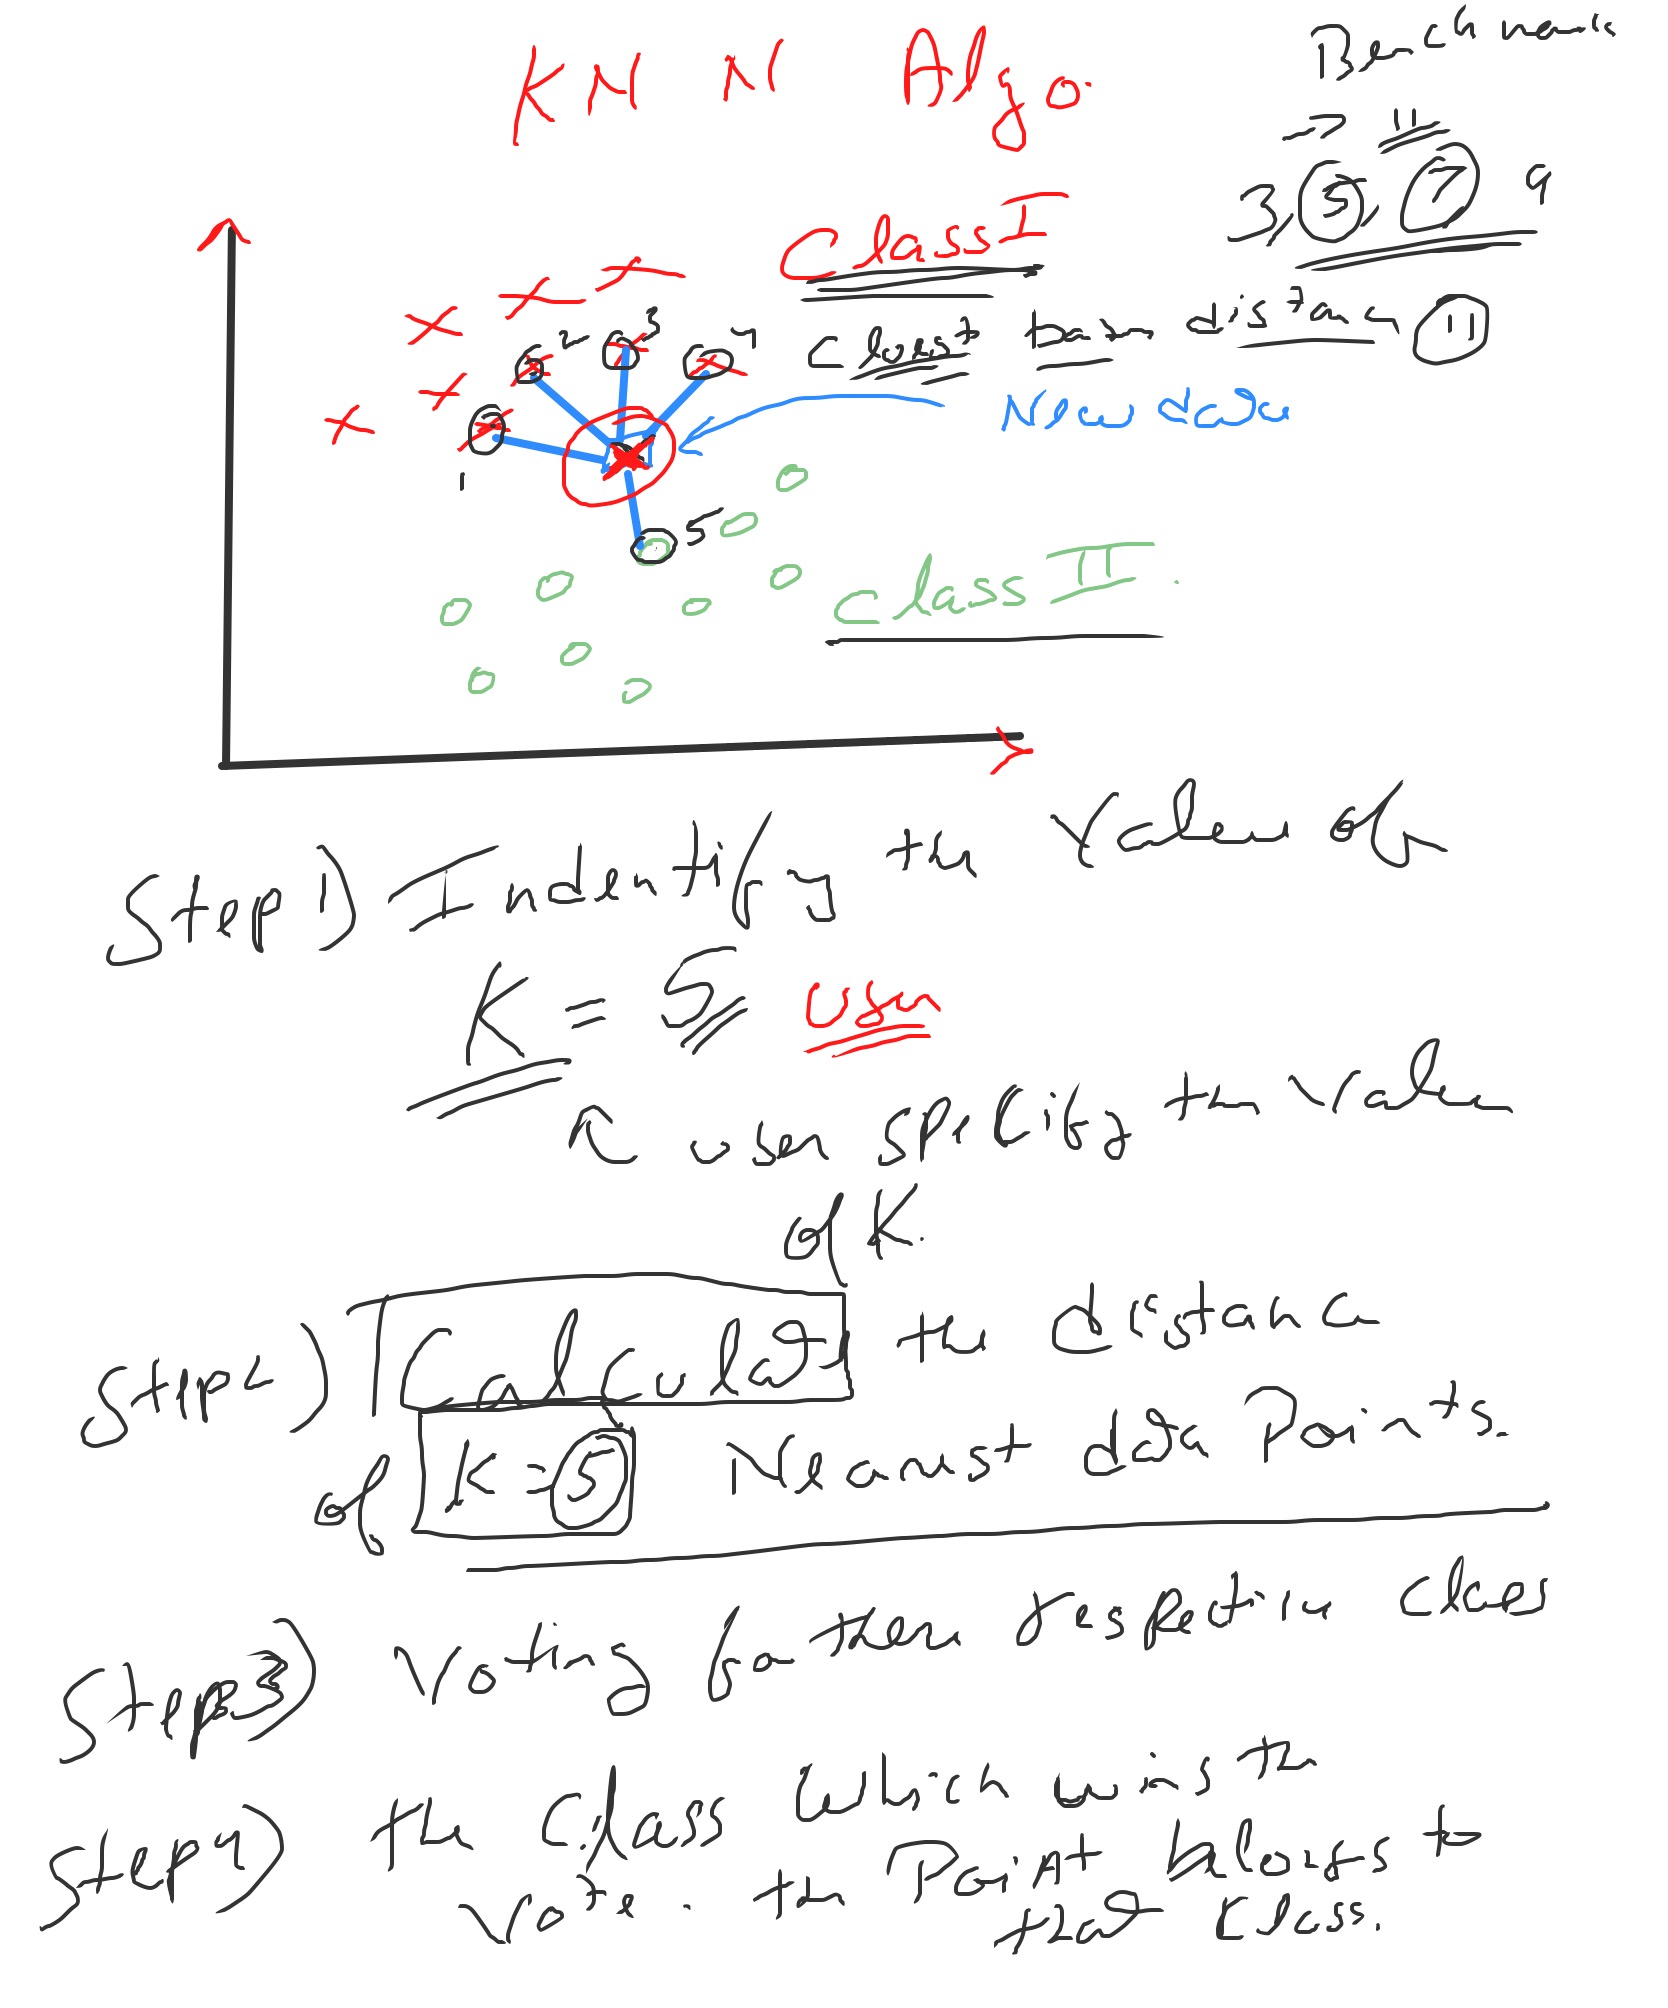 KNN Algo.
Benchmark
→ 11
3, 5, 7 9
Class I
2 3 4
distance 11
New data
1
5
Class II.
Step 1) Indentify the Value of
K = 5 User
user specify the value
of K.
Step 2) Calculate the distance
of K = 5 Nearest data Points.
Step 3) Voting for there respective class
Step 4) the Class Which wins the
Vote. the Point belongs to
that Class.